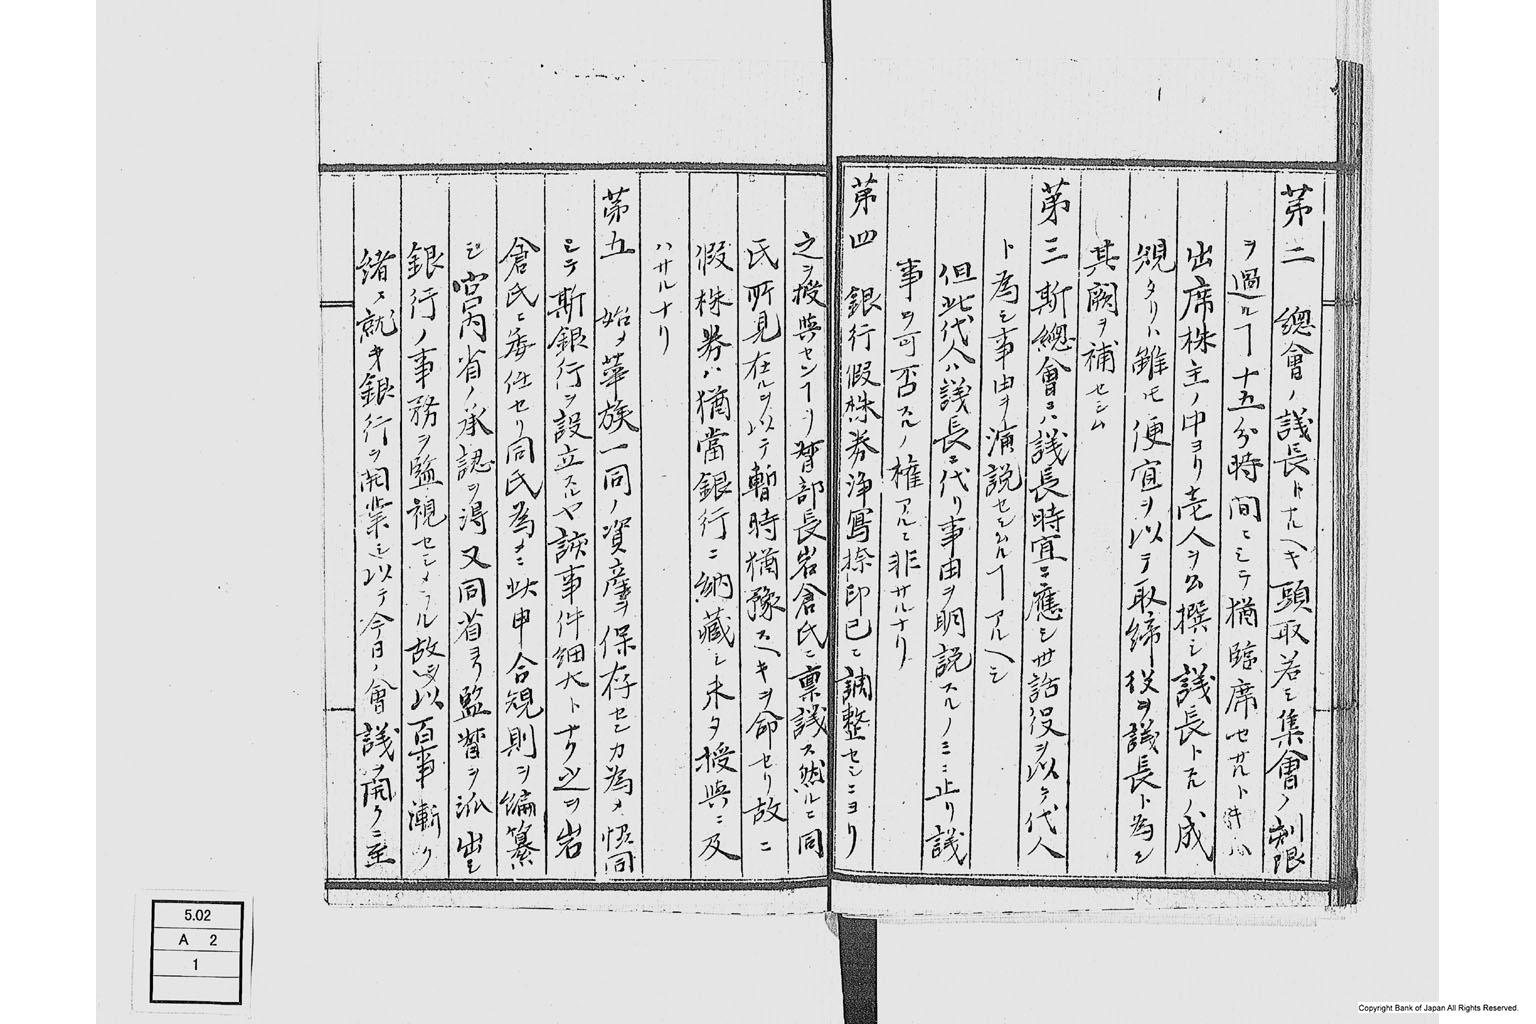 第二 總會ノ議長トナルヘキ頭取若シ集會ノ刻限
ヲ過ルヿ十五分時間ニシテ猶臨席セサルトキハ
出席株主ノ中ヨリ壱人ヲ公撰シ議長トスルノ成
規タリト雖モ便宜ヲ以テ取締役ヲ議長ト為シ
其闕ヲ補セシム
第三 斯總會ニハ議長時宜ニ應シ世話役ヲ以テ代人
ト為シ事由ヲ演説セシムルヿアルヘシ
但此代人ハ議長ニ代リ事由ヲ明説スルノミニ止リ議
事ヲ可否スルノ權アルニ非サルナリ
第四 銀行假株券淨寫捺印已ニ調整セシニヨリ
之ヲ授與センヿヲ督部長岩倉氏ニ稟議ス然ルニ同
氏所見在ルヲ以テ暫時猶豫スヘキヲ命セリ故ニ
假株券ハ猶當銀行ニ納藏シ未タ授與ニ及
ハサルナリ
第五 始メ華族一同ノ資産ヲ保存センカ為メ恊同
シテ斯銀行ヲ設立スルヤ該事件細大トナク之ヲ岩
倉氏ニ委任セリ同氏為メニ此申合規則ヲ編纂
シ宮内省ノ承認ヲ得又同省ヨリ監督ヲ派出シ
銀行ノ事務ヲ監視セシメラル故ヲ以百事漸ク
緒ニ就キ銀行ヲ開業シ以テ今日ノ會議ヲ開クニ至
5.02
A 2
1
Copyright Bank of Japan All Rights Reserved.